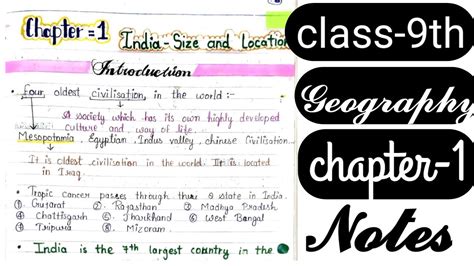 Chapter = 1
India - Size and Location
Introduction
• four, oldest civilisation, in the world :-
A society which has its own highly developed
culture and way of life.
Mesopotamia, Egyptian, Indus valley, chinese Civilisation
It is oldest civilisation in the world. It is located
in Iraq.
• Tropic cancer passes through thru 8 state in India.
① Gujarat ② Rajasthan ③ Madhya Pradesh
④ Chattigarh ⑤ Jharkhand ⑥ West Bangal
⑦ Tripura ⑧ Mizoram
• India is the 7th largest country in the
class-9th
Geography
chapter-1
Notes